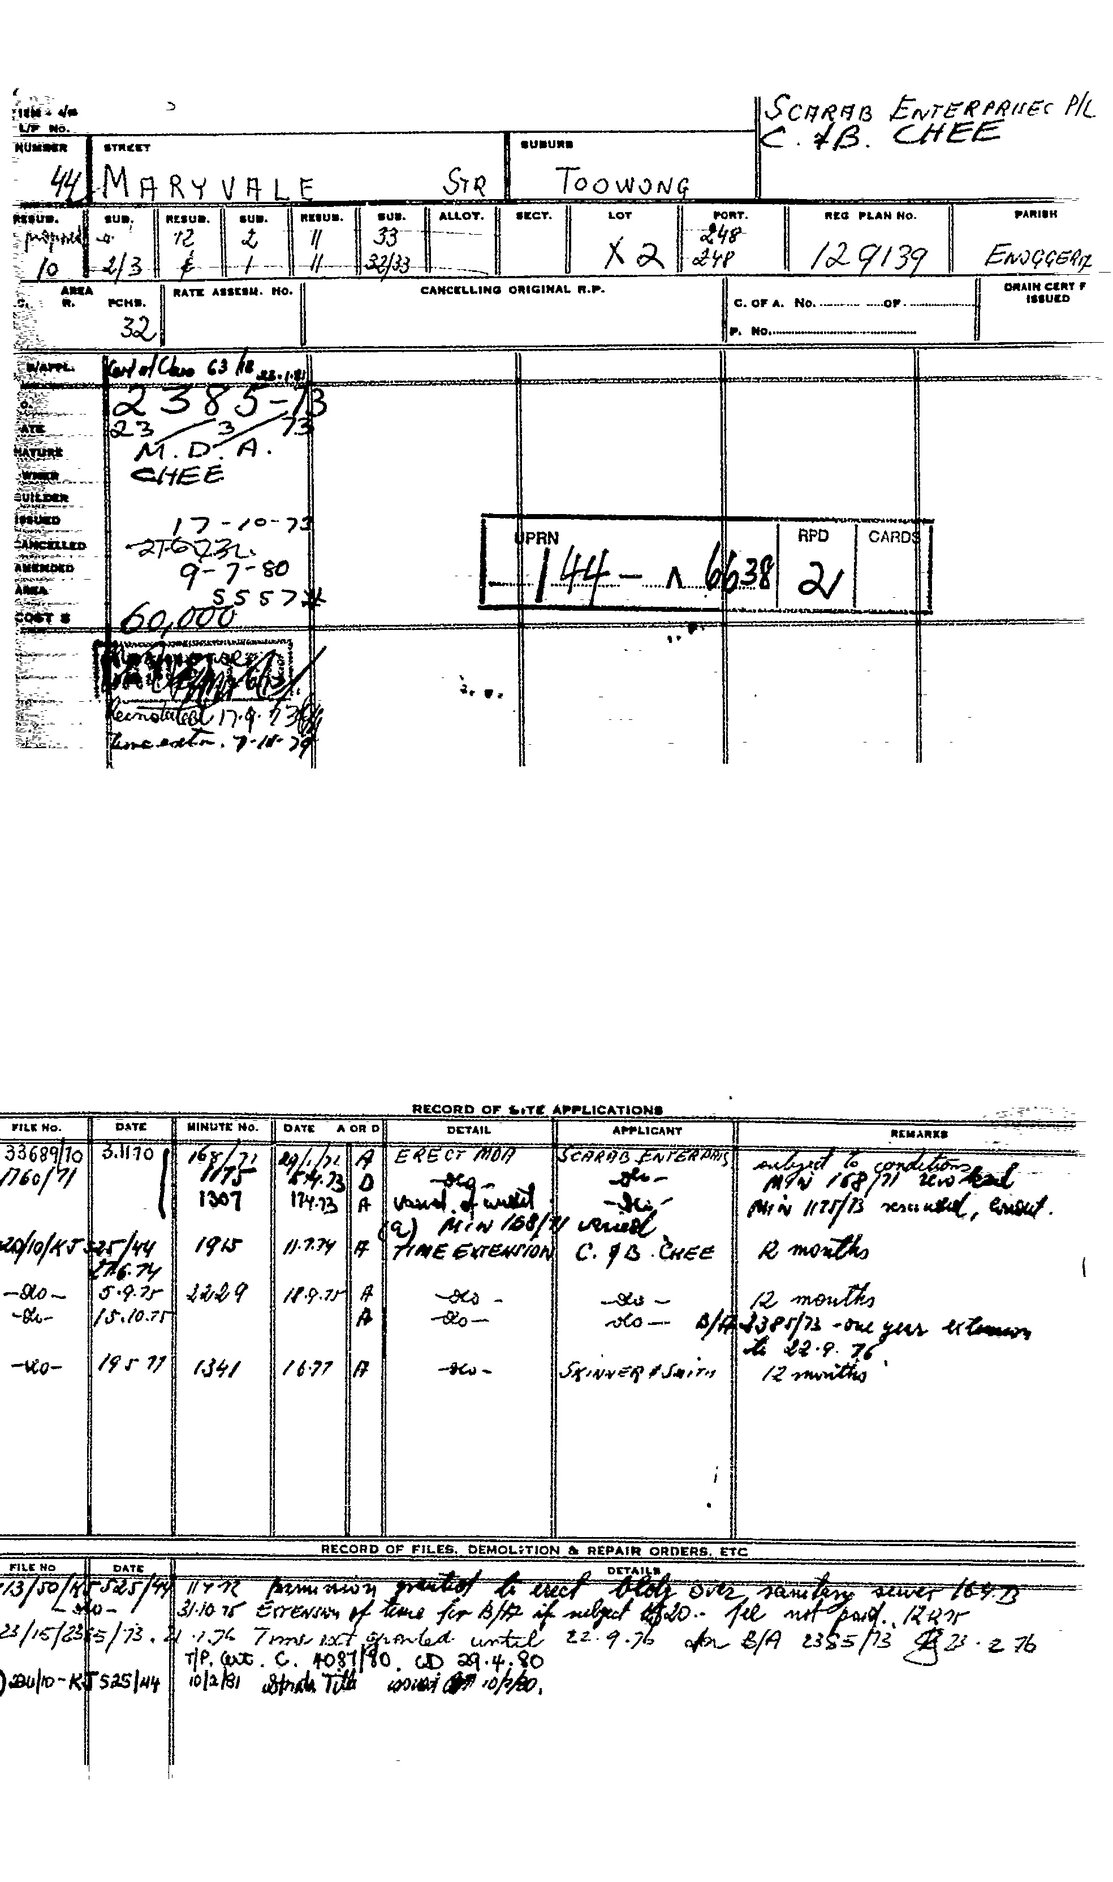 L/P No.
SCARAB ENTERPRISES P/L
C. & B. CHEE
NUMBER STREET SUBURB
44 MARYVALE STR TOOWONG
RESUB. SUB. RESUB. SUB. RESUB. SUB. ALLOT. SECT. LOT PORT. REG PLAN No. PARISH
12 2 11 33 248
10 2/3 & 1 11 32/33 X 2 248 129139 ENOGGERA
AREA RATE ASSESM. No. CANCELLING ORIGINAL R.P. DRAIN CERT F
R. PCHS. ISSUED
32 C. OF A. No. OF
P. No.
B/APPL. Cert of Class 63/
2385-73
23 3 73
NATURE M.D.A.
OWNER CHEE
BUILDER
ISSUED 17-10-73
CANCELLED
AMENDED 9-7-80
AREA 5557
COST $ 60,000
UPRN RPD CARDS
144 - 6638 2
Reinstated 17.9.
Time extn.
RECORD OF SITE APPLICATIONS
FILE No. DATE MINUTE No. DATE A OR D DETAIL APPLICANT REMARKS
33689/70 3.11.70 168/71 A ERECT MDA SCARAB ENTERPRIS subject to conditions
1760/71 1175 5.4.73 D -do- -do- MIN 168/71
1307 17.4.73 A -do- MIN 1175/73
(a) MIN 168/71 varied
525/44 1915 11.7.74 A TIME EXTENSION C. & B. CHEE 12 months
-do- 5.9.75 2229 18.9.75 A -do- -do- 12 months
-do- 15.10.75 A -do- -do- B/A 2385/73 - one year extension
to 22.9.76
-do- 19 5 77 1341 1 6 77 A -do- SKINNER & SMITH 12 months
RECORD OF FILES, DEMOLITION & REPAIR ORDERS, ETC
FILE No DATE DETAILS
525/44 permission granted to erect bldg over sanitary sewer
-do- 31.10.75 Extension of time for B/A if subject $20 - fee not paid.
Time ext granted until 22.9.76 for B/A 2385/73 23.2.76
T/P. Cert. C. 4087/80. CD 29.4.80
KJ 525/44 10/2/81 Strata Title issued